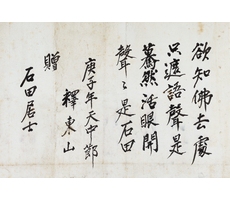 欲知佛去處
只這語聲是
驀然活眼開
聲〻是石田
庚子年天中節
釋東山
贈
石田居士